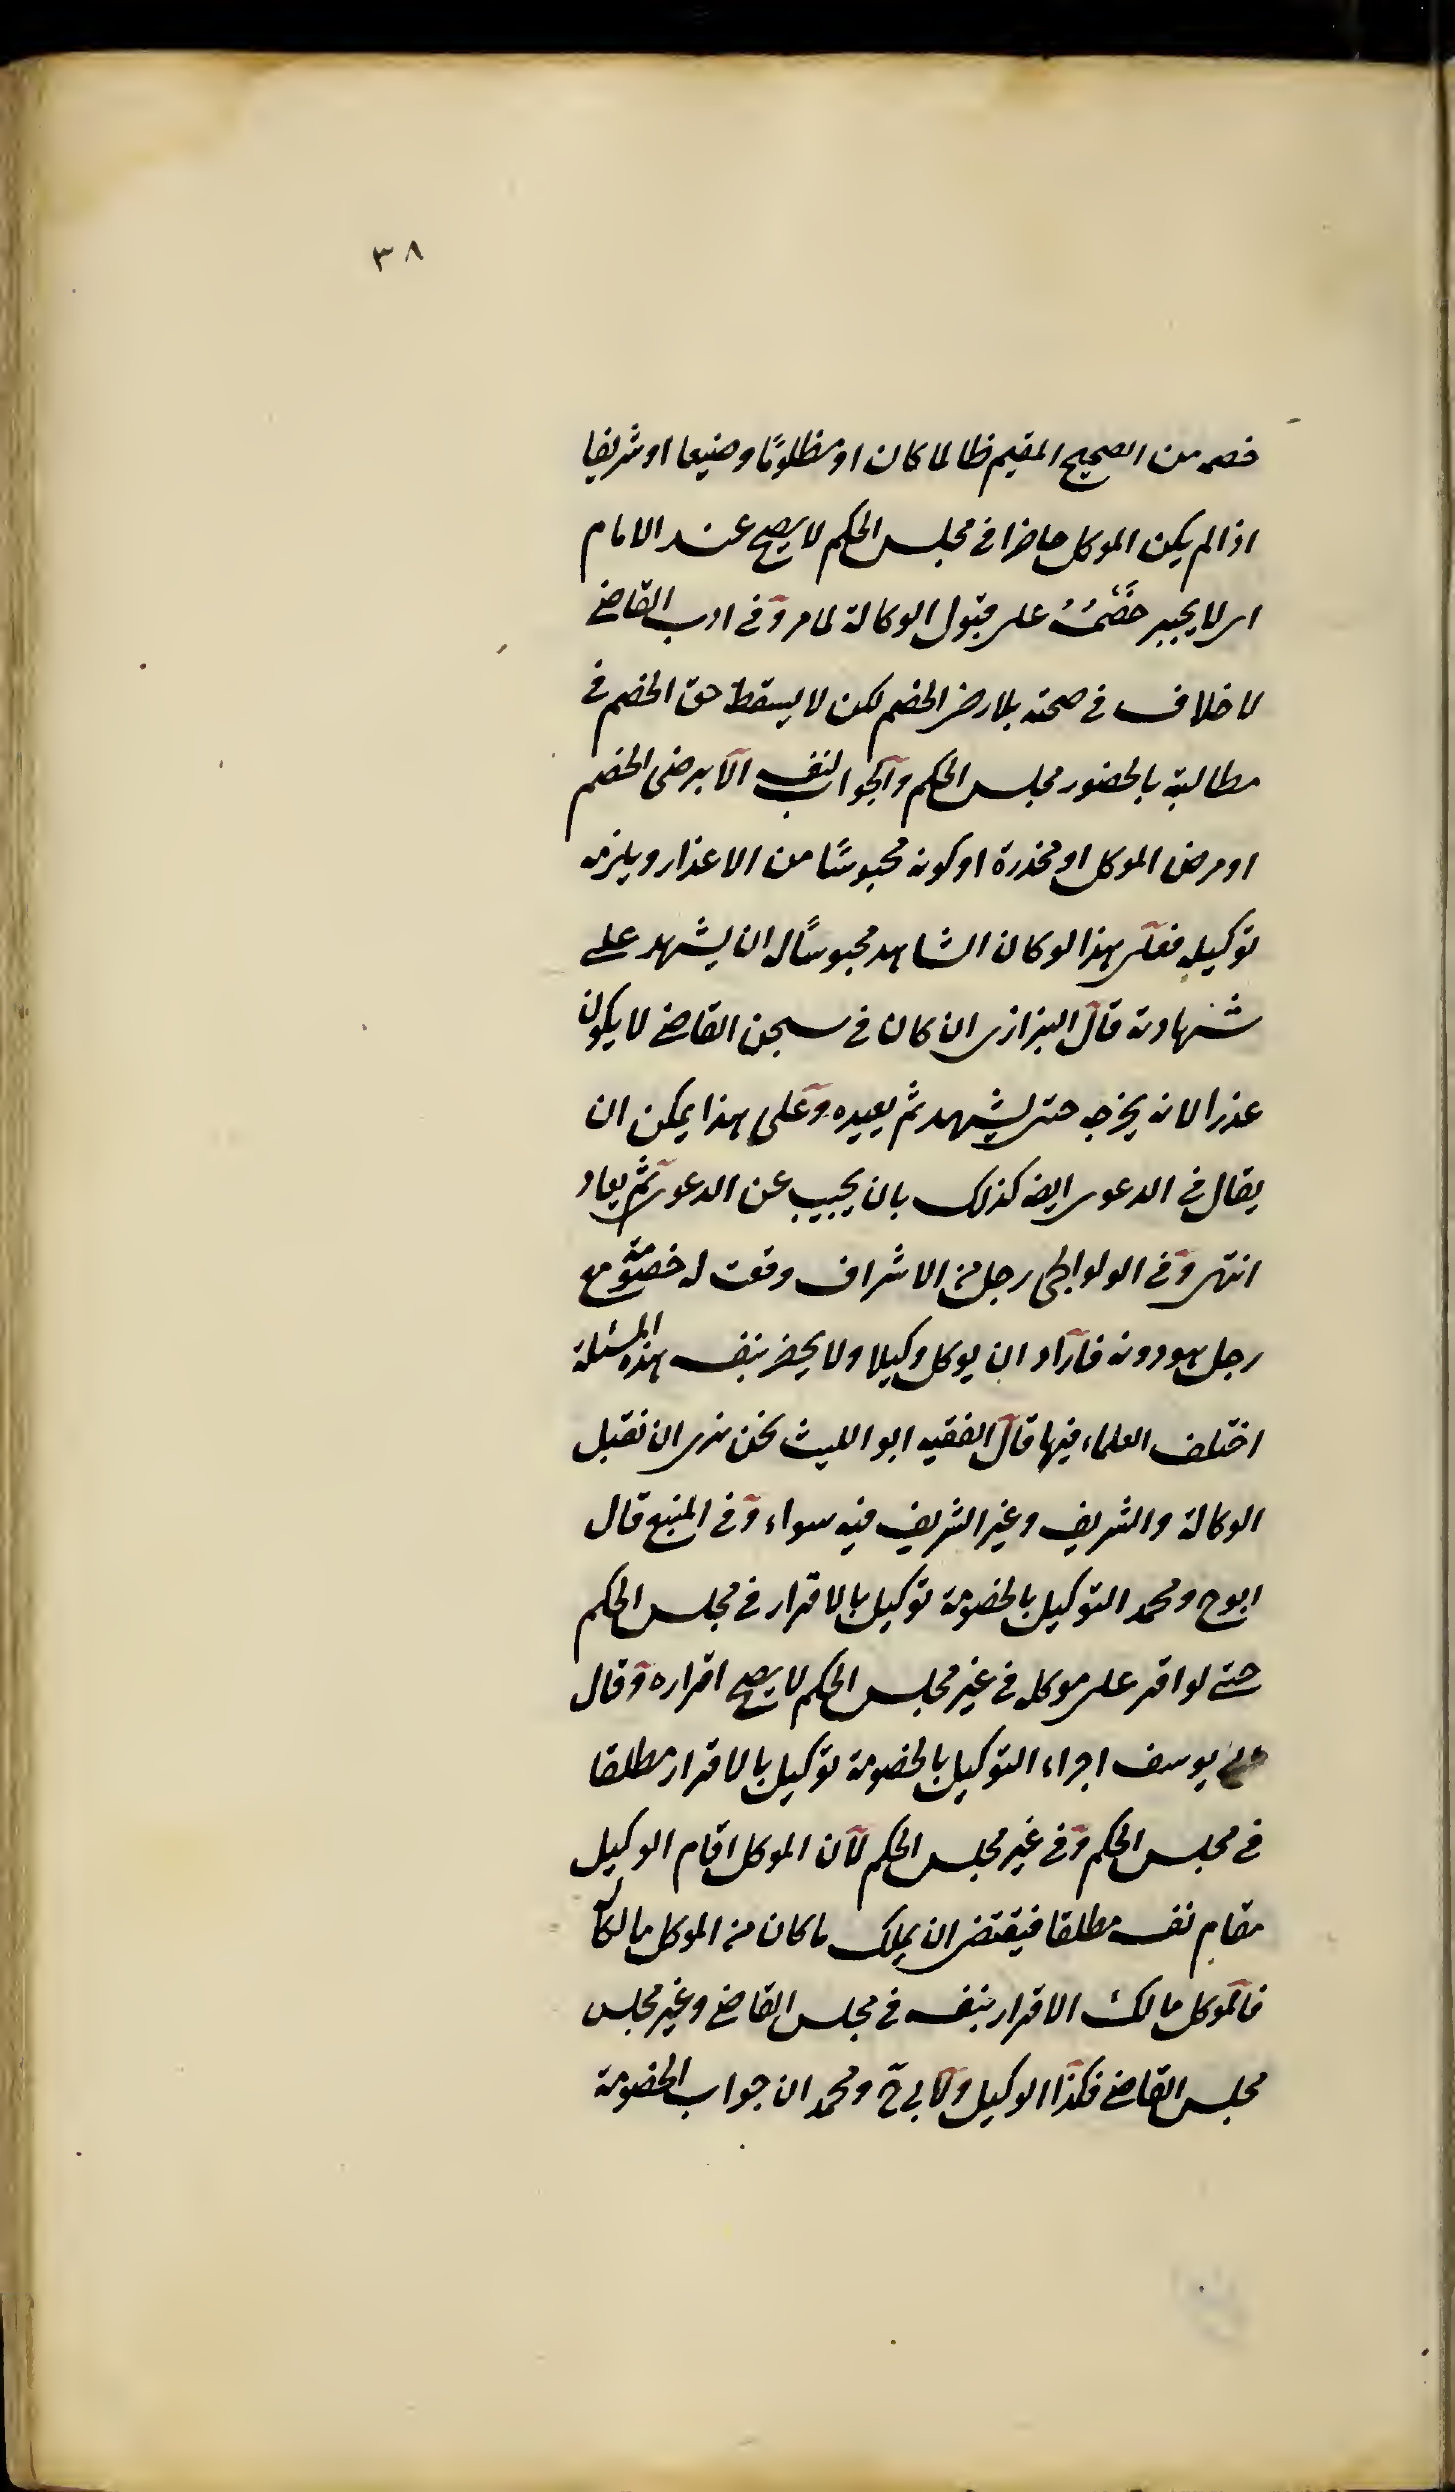 ٣٨
خصمه من الصحيح المقيم ظالما كان او مظلومًا وضيعا او شريفا
اذا لم يكن الموكل حاضرا في مجلس الحكم لا يصح عند الامام
اى لا يجبر خَصْمُهُ على قبول الوكالة لما مر وفي ادب القاضے
لا خلاف في صحته بلا رضى الخصم لكن لا يسقط حق الخصم في
مطالبته بالحضور مجلس الحكم والجواب بنفسه الا برضى الخصم
او مرض الموكل او مخدرة او كونه محبوسًا من الاعذار ويلزمه
توكيله فعلى هذا لو كان الشاهد محبوسًا له ان يشهد على
شهادته قال البزازى ان كان في سجن القاضے لا يكون
عذرا لانه يخرجه حتى يشهد ثم يعيده وعلى هذا يمكن ان
يقال في الدعوى ايضا كذلك بان يجيب عن الدعوى ثم يعاد
انتهى وفي الولوالجى رجل من الاشراف وقعت له خصومة مع
رجل هو دونه فاراد ان يوكل وكيلا ولا يحضر بنفسه هذه المسئلة
اختلف العلماء فيها قال الفقيه ابو الليث نحن نرى ان نقبل
الوكالة والشريف وغير الشريف فيه سواء وفي المنبع قال
ابوح ومحمد التوكيل بالخصومة توكيل بالاقرار في مجلس الحكم
حتے لو اقر على موكله في غير مجلس الحكم لا يصح اقراره وقال
يوسف اجراء التوكيل بالخصومة توكيل بالاقرار مطلقا
في مجلس الحكم وفي غير مجلس الحكم لان الموكل اقام الوكيل
مقام نفسه مطلقا فيقتضى ان يملك ما كان من الموكل مالكا له
فالموكل مالك الاقرار بنفسه في مجلس القاضے وغير مجلس
مجلس القاضے فكذا الوكيل ولابى ح ومحمد ان جواب الخصومة